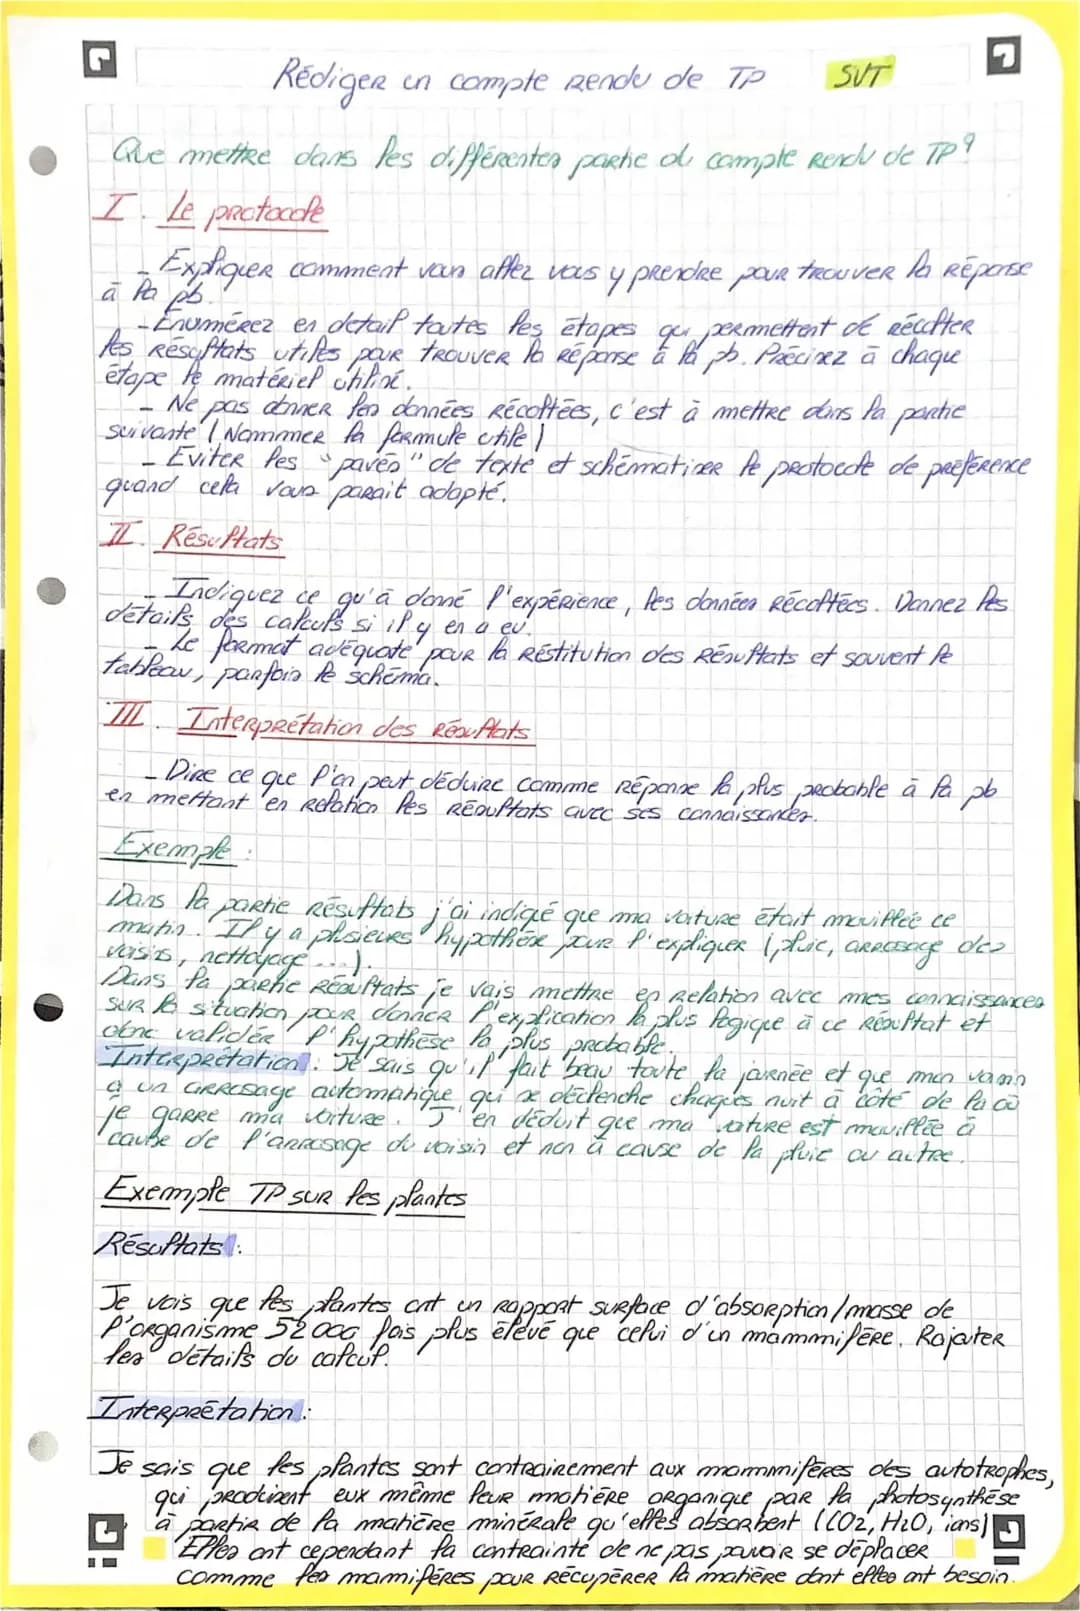 Rédiger un compte rendu de TP SVT
Que mettre dans les différentes partie du compte rendu de TP ?
I. Le protocole
- Expliquer comment vous allez vous y prendre pour trouver la réponse
à la pb.
- Enumérez en detail toutes les étapes qui permettent de récolter
les résultats utiles pour trouver la réponse à la pb. Précisez à chaque
étape le matériel utilisé.
- Ne pas donner les données récoltées, c'est à mettre dans la partie
suivante (Nommer la formule utile)
- Eviter les "pavés" de texte et schématiser le protocole de préférence
quand cela vous parait adapté.
II. Résultats
- Indiquez ce qu'à donné l'expérience, les données récoltées. Donnez les
détails des calculs si il y en a eu.
- Le format adéquate pour la réstitution des résultats et souvent le
tableau, parfois le schéma.
III. Interprétation des résultats
- Dire ce que l'on peut déduire comme réponse la plus probable à la pb
en mettant en relation les résultats avec ses connaissances.
Exemple :
Dans la partie résultats j'ai indiqué que ma voiture était mouillée ce
matin. Il y a plusieurs hypothèse pour l'expliquer (pluie, arrosage des
voisins, nettoyage ...).
Dans la partie résultats je vais mettre en relation avec mes connaissances
sur la situation pour donner l'explication la plus logique à ce résultat et
donc validér l'hypothèse la plus probable.
Interprétation : Je sais qu'il fait beau toute la journée et que mon voisin
a un arrosage automatique qui se déclenche chaques nuit à côté de là où
je garre ma voiture. J'en déduit que ma voiture est mouillée à
cause de l'arrosage du voisin et non à cause de la pluie ou autre.
Exemple TP sur les plantes
Résultats :
Je vois que les plantes ont un rapport surface d'absorption/masse de
l'organisme 52000 fois plus élevé que celui d'un mammmifère. Rajouter
les détails du calcul.
Interprétation :
Je sais que les plantes sont contrairement aux mammmifères des autotrophes,
qui produisent eux même leur matière organique par la photosynthèse
à partir de la matière minérale qu'elles absorbent (CO2, H2O, ions)
Elles ont cependant la contrainte de ne pas pouvoir se déplacer
comme les mammifères pour récupérer la matière dont elles ont besoin.